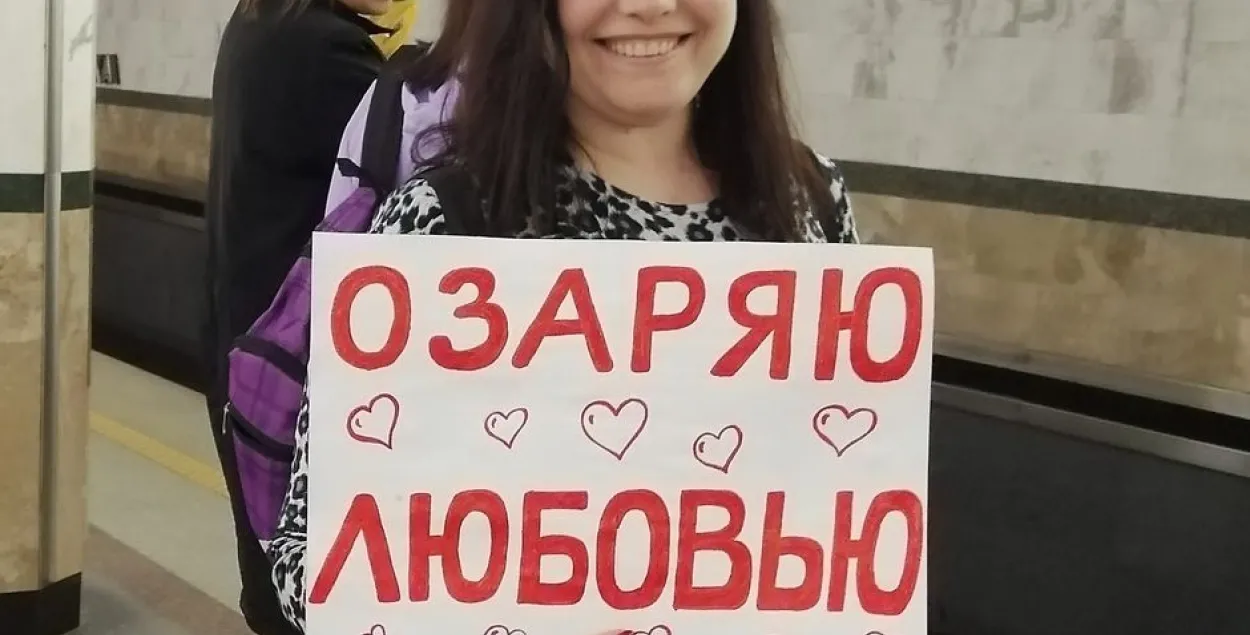 ОЗАРЯЮ
ЛЮБОВЬЮ